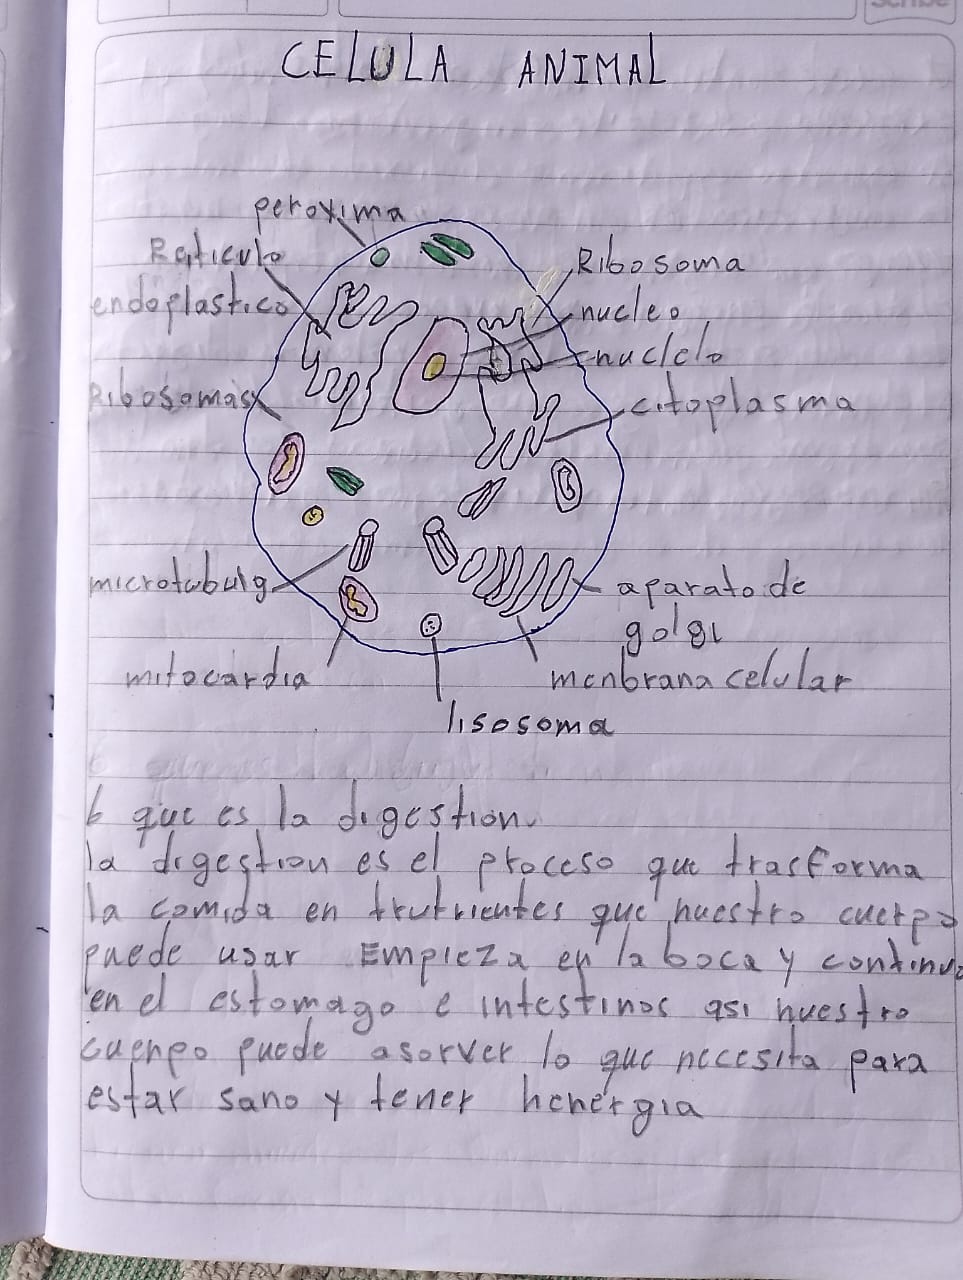 CELULA ANIMAL
peroxima
Raticulo
endoplastico
Ribosoma
nucleo
nuclelo
Ribosomas
citoplasma
microtubulg
aparato de
golgi
mitocardia
menbrana celular
lisosoma
6 que es la digestion.
la digestion es el proceso que trasforma
la comida en trutrientes que nuestro cuerpo
puede usar Empieza en la boca y continua
en el estomago e intestinos asi nuestro
cuenpo puede asorver lo que necesita para
estar sano y tener henergia